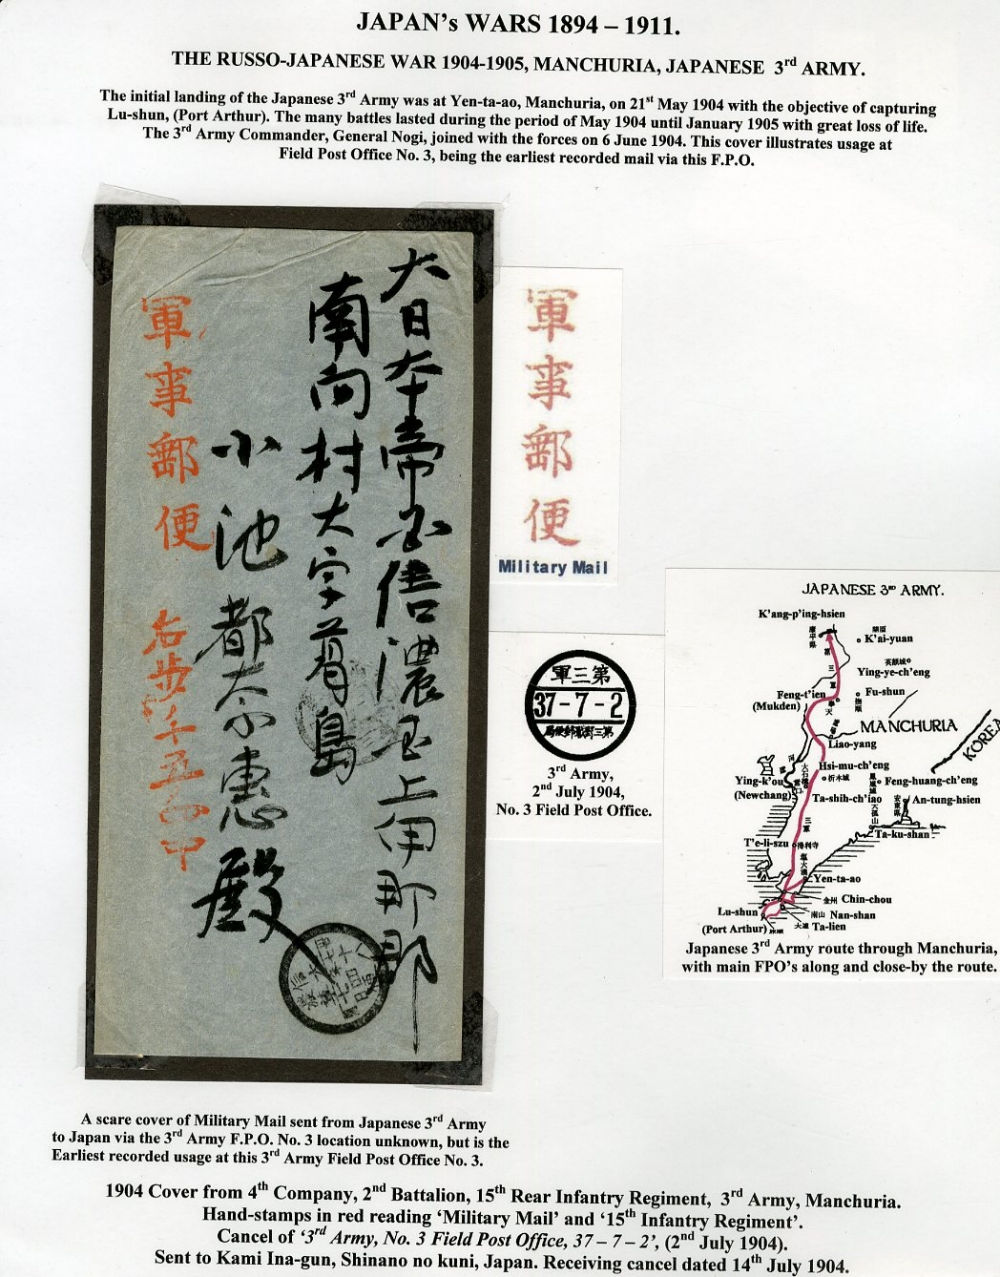 JAPAN's WARS 1894 – 1911.
THE RUSSO-JAPANESE WAR 1904-1905, MANCHURIA, JAPANESE 3rd ARMY.
The initial landing of the Japanese 3rd Army was at Yen-ta-ao, Manchuria, on 21st May 1904 with the objective of capturing
Lu-shun, (Port Arthur). The many battles lasted during the period of May 1904 until January 1905 with great loss of life.
The 3rd Army Commander, General Nogi, joined with the forces on 6 June 1904. This cover illustrates usage at
Field Post Office No. 3, being the earliest recorded mail via this F.P.O.
大日本帝国信濃国上伊那郡
南向村大字葛島
小池都奈恵殿
軍事郵便
軍事郵便
Military Mail
第三軍
37-7-2
第三野戦郵便局
3rd Army,
2nd July 1904,
No. 3 Field Post Office.
JAPANESE 3RD ARMY.
K'ang-p'ing-hsien
康平県
K'ai-yuan
Ying-ye-ch'eng
Feng-t'ien
(Mukden)
奉天
Fu-shun
撫順
MANCHURIA
KOREA
Liao-yang
Hsi-mu-ch'eng
析木城
Ying-k'ou
(Newchang)
大石橋
Feng-huang-ch'eng
鳳凰城
Ta-shih-ch'iao
An-tung-hsien
安東県
大孤山
Ta-ku-shan
T'e-li-szu
得利寺
Yen-ta-ao
塩大澳
金州 Chin-chou
Lu-shun
南山 Nan-shan
(Port Arthur)
大連 Ta-lien
Japanese 3rd Army route through Manchuria,
with main FPO's along and close-by the route.
A scare cover of Military Mail sent from Japanese 3rd Army
to Japan via the 3rd Army F.P.O. No. 3 location unknown, but is the
Earliest recorded usage at this 3rd Army Field Post Office No. 3.
1904 Cover from 4th Company, 2nd Battalion, 15th Rear Infantry Regiment, 3rd Army, Manchuria.
Hand-stamps in red reading ‘Military Mail’ and ‘15th Infantry Regiment’.
Cancel of ‘3rd Army, No. 3 Field Post Office, 37 – 7 – 2’, (2nd July 1904).
Sent to Kami Ina-gun, Shinano no kuni, Japan. Receiving cancel dated 14th July 1904.